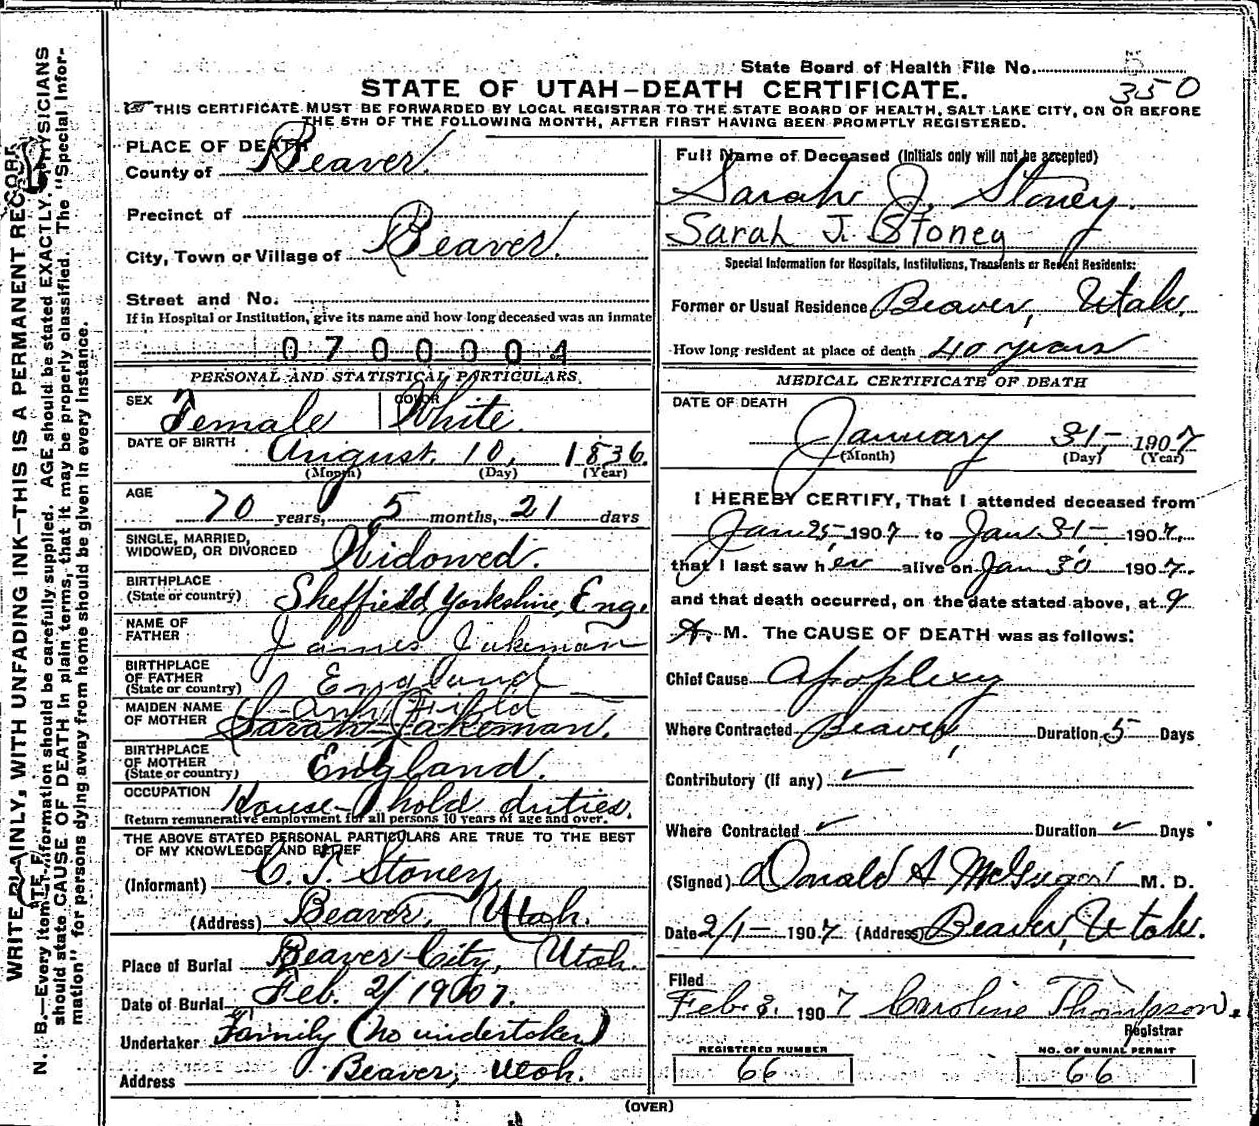 State Board of Health File No. 5
350
STATE OF UTAH–DEATH CERTIFICATE.
THIS CERTIFICATE MUST BE FORWARDED BY LOCAL REGISTRAR TO THE STATE BOARD OF HEALTH, SALT LAKE CITY, ON OR BEFORE
THE 5TH OF THE FOLLOWING MONTH, AFTER FIRST HAVING BEEN PROMPTLY REGISTERED.
PLACE OF DEATH
County of Beaver.
Precinct of
City, Town or Village of Beaver.
Street and No.
If in Hospital or Institution, give its name and how long deceased was an inmate
0700004
PERSONAL AND STATISTICAL PARTICULARS
SEX Female COLOR White.
DATE OF BIRTH August, 10, 1836.
(Month) (Day) (Year)
AGE 70 years, 5 months, 21 days
SINGLE, MARRIED,
WIDOWED, OR DIVORCED Widowed.
BIRTHPLACE
(State or country) Sheffield Yorkshire, Eng.
NAME OF
FATHER James Jakeman
BIRTHPLACE
OF FATHER
(State or country) England
Ann Fifild
MAIDEN NAME
OF MOTHER Sarah Jakeman.
BIRTHPLACE
OF MOTHER
(State or country) England.
OCCUPATION House-hold duties.
Return remunerative employment for all persons 10 years of age and over.
THE ABOVE STATED PERSONAL PARTICULARS ARE TRUE TO THE BEST
OF MY KNOWLEDGE AND BELIEF
(Informant) C. T. Stoney
(Address) Beaver, Utah.
Place of Burial Beaver City, Utah.
Date of Burial Feb. 2/1907.
Undertaker Family (no undertaker)
Address Beaver, Utah.
Full Name of Deceased (Initials only will not be accepted)
Sarah J. Stoney.
Sarah J. Stoney
Special Information for Hospitals, Institutions, Transients or Recent Residents:
Former or Usual Residence Beaver, Utah.
How long resident at place of death 40 years
MEDICAL CERTIFICATE OF DEATH
DATE OF DEATH
January 31- 1907
(Month) (Day) (Year)
I HEREBY CERTIFY, That I attended deceased from
Jan 25- 1907 to Jan 31- 1907.
that I last saw her alive on Jan 30 1907.
and that death occurred, on the date stated above, at 9
A. M. The CAUSE OF DEATH was as follows:
Chief Cause Apoplexy
Where Contracted Beaver, Duration 5 Days
Contributory (if any) ✓
Where Contracted ✓ Duration ✓ Days
(Signed) Donald A McGregor M. D.
Date 2/1- 1907 (Address) Beaver, Utah.
Filed
Feb. 3. 1907 Caroline Thompson.
Registrar
REGISTERED NUMBER
66
NO. OF BURIAL PERMIT
66
(OVER)
WRITE PLAINLY, WITH UNFADING INK—THIS IS A PERMANENT RECORD
N. B.—Every item of information should be carefully supplied. AGE should be stated EXACTLY. PHYSICIANS
should state CAUSE OF DEATH in plain terms, that it may be properly classified. The "Special Infor-
mation" for persons dying away from home should be given in every instance.